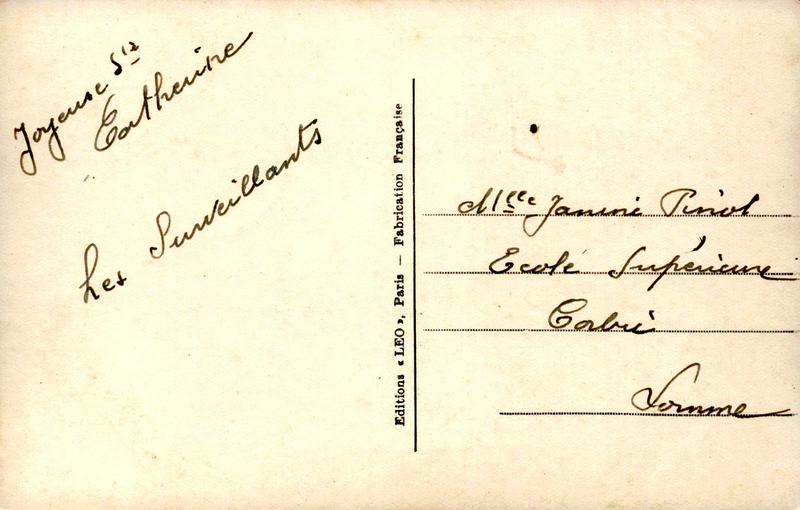 Joyeuse Ste
Catherine
Les Surveillants
Editions « LEO », Paris — Fabrication Française
Mlle Janine Piriol
Ecole Supérieure
Corbie
Somme